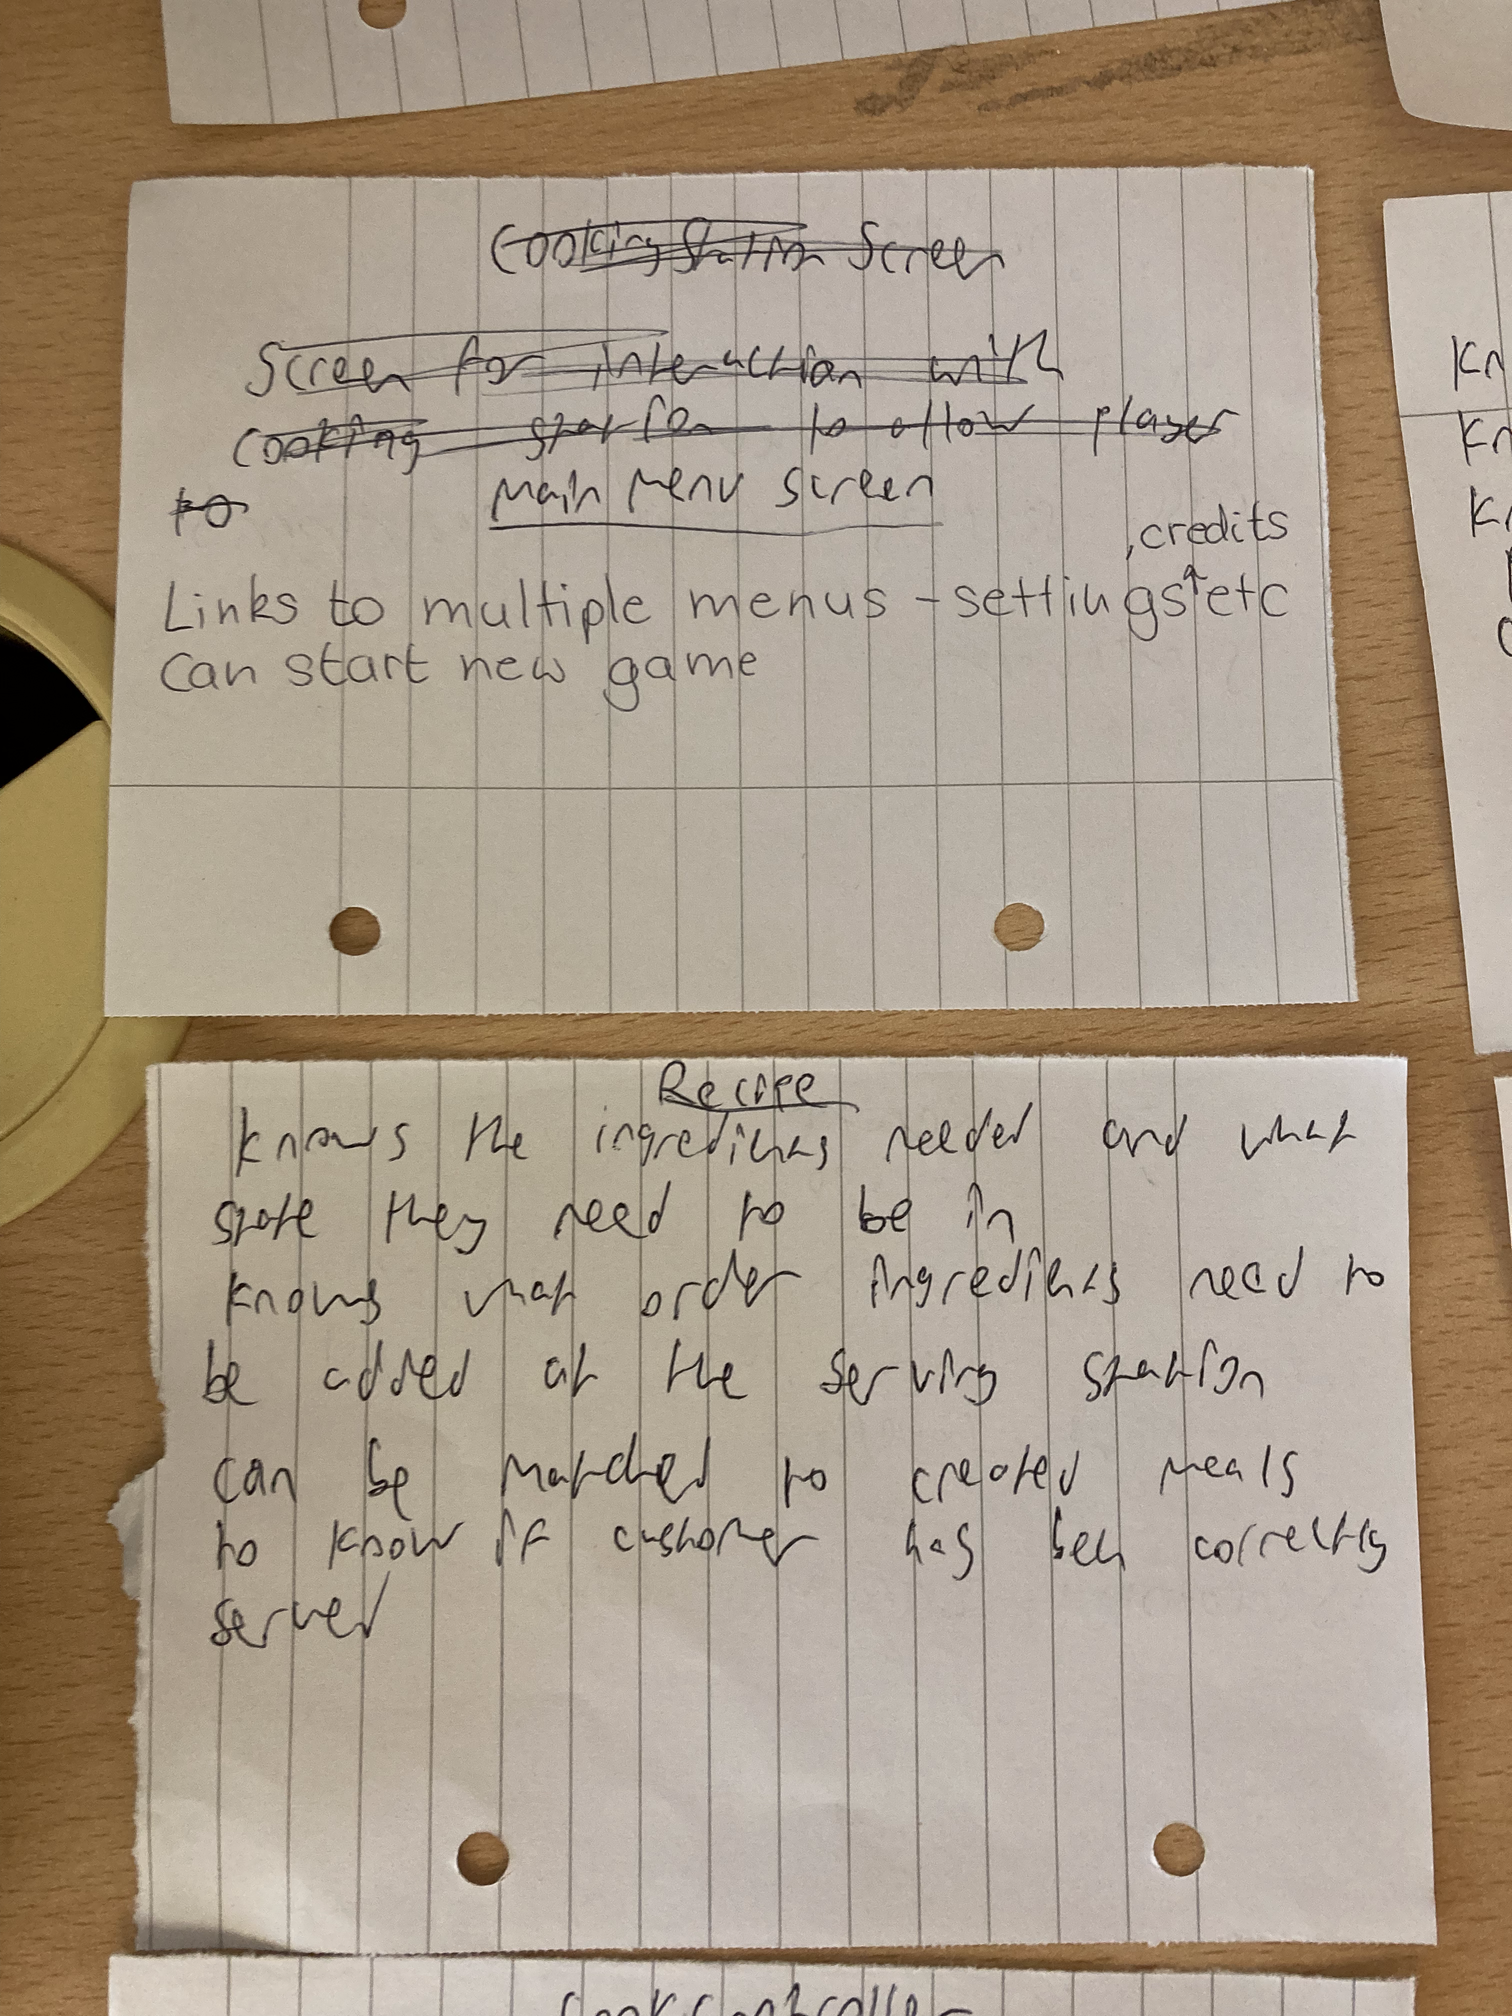 Cooking Station Screen
Screen for interaction with
cooking station to allow player
to
Main Menu Screen
, credits
Links to multiple menus - settings ↑ etc
Can start new game
Recipe
knows the ingredients needed and what
state they need to be in
knows what order ingredients need to
be added at the serving station
can be matched to created meals
to know if customer has been correctly
served
Kn
Kn
Kn